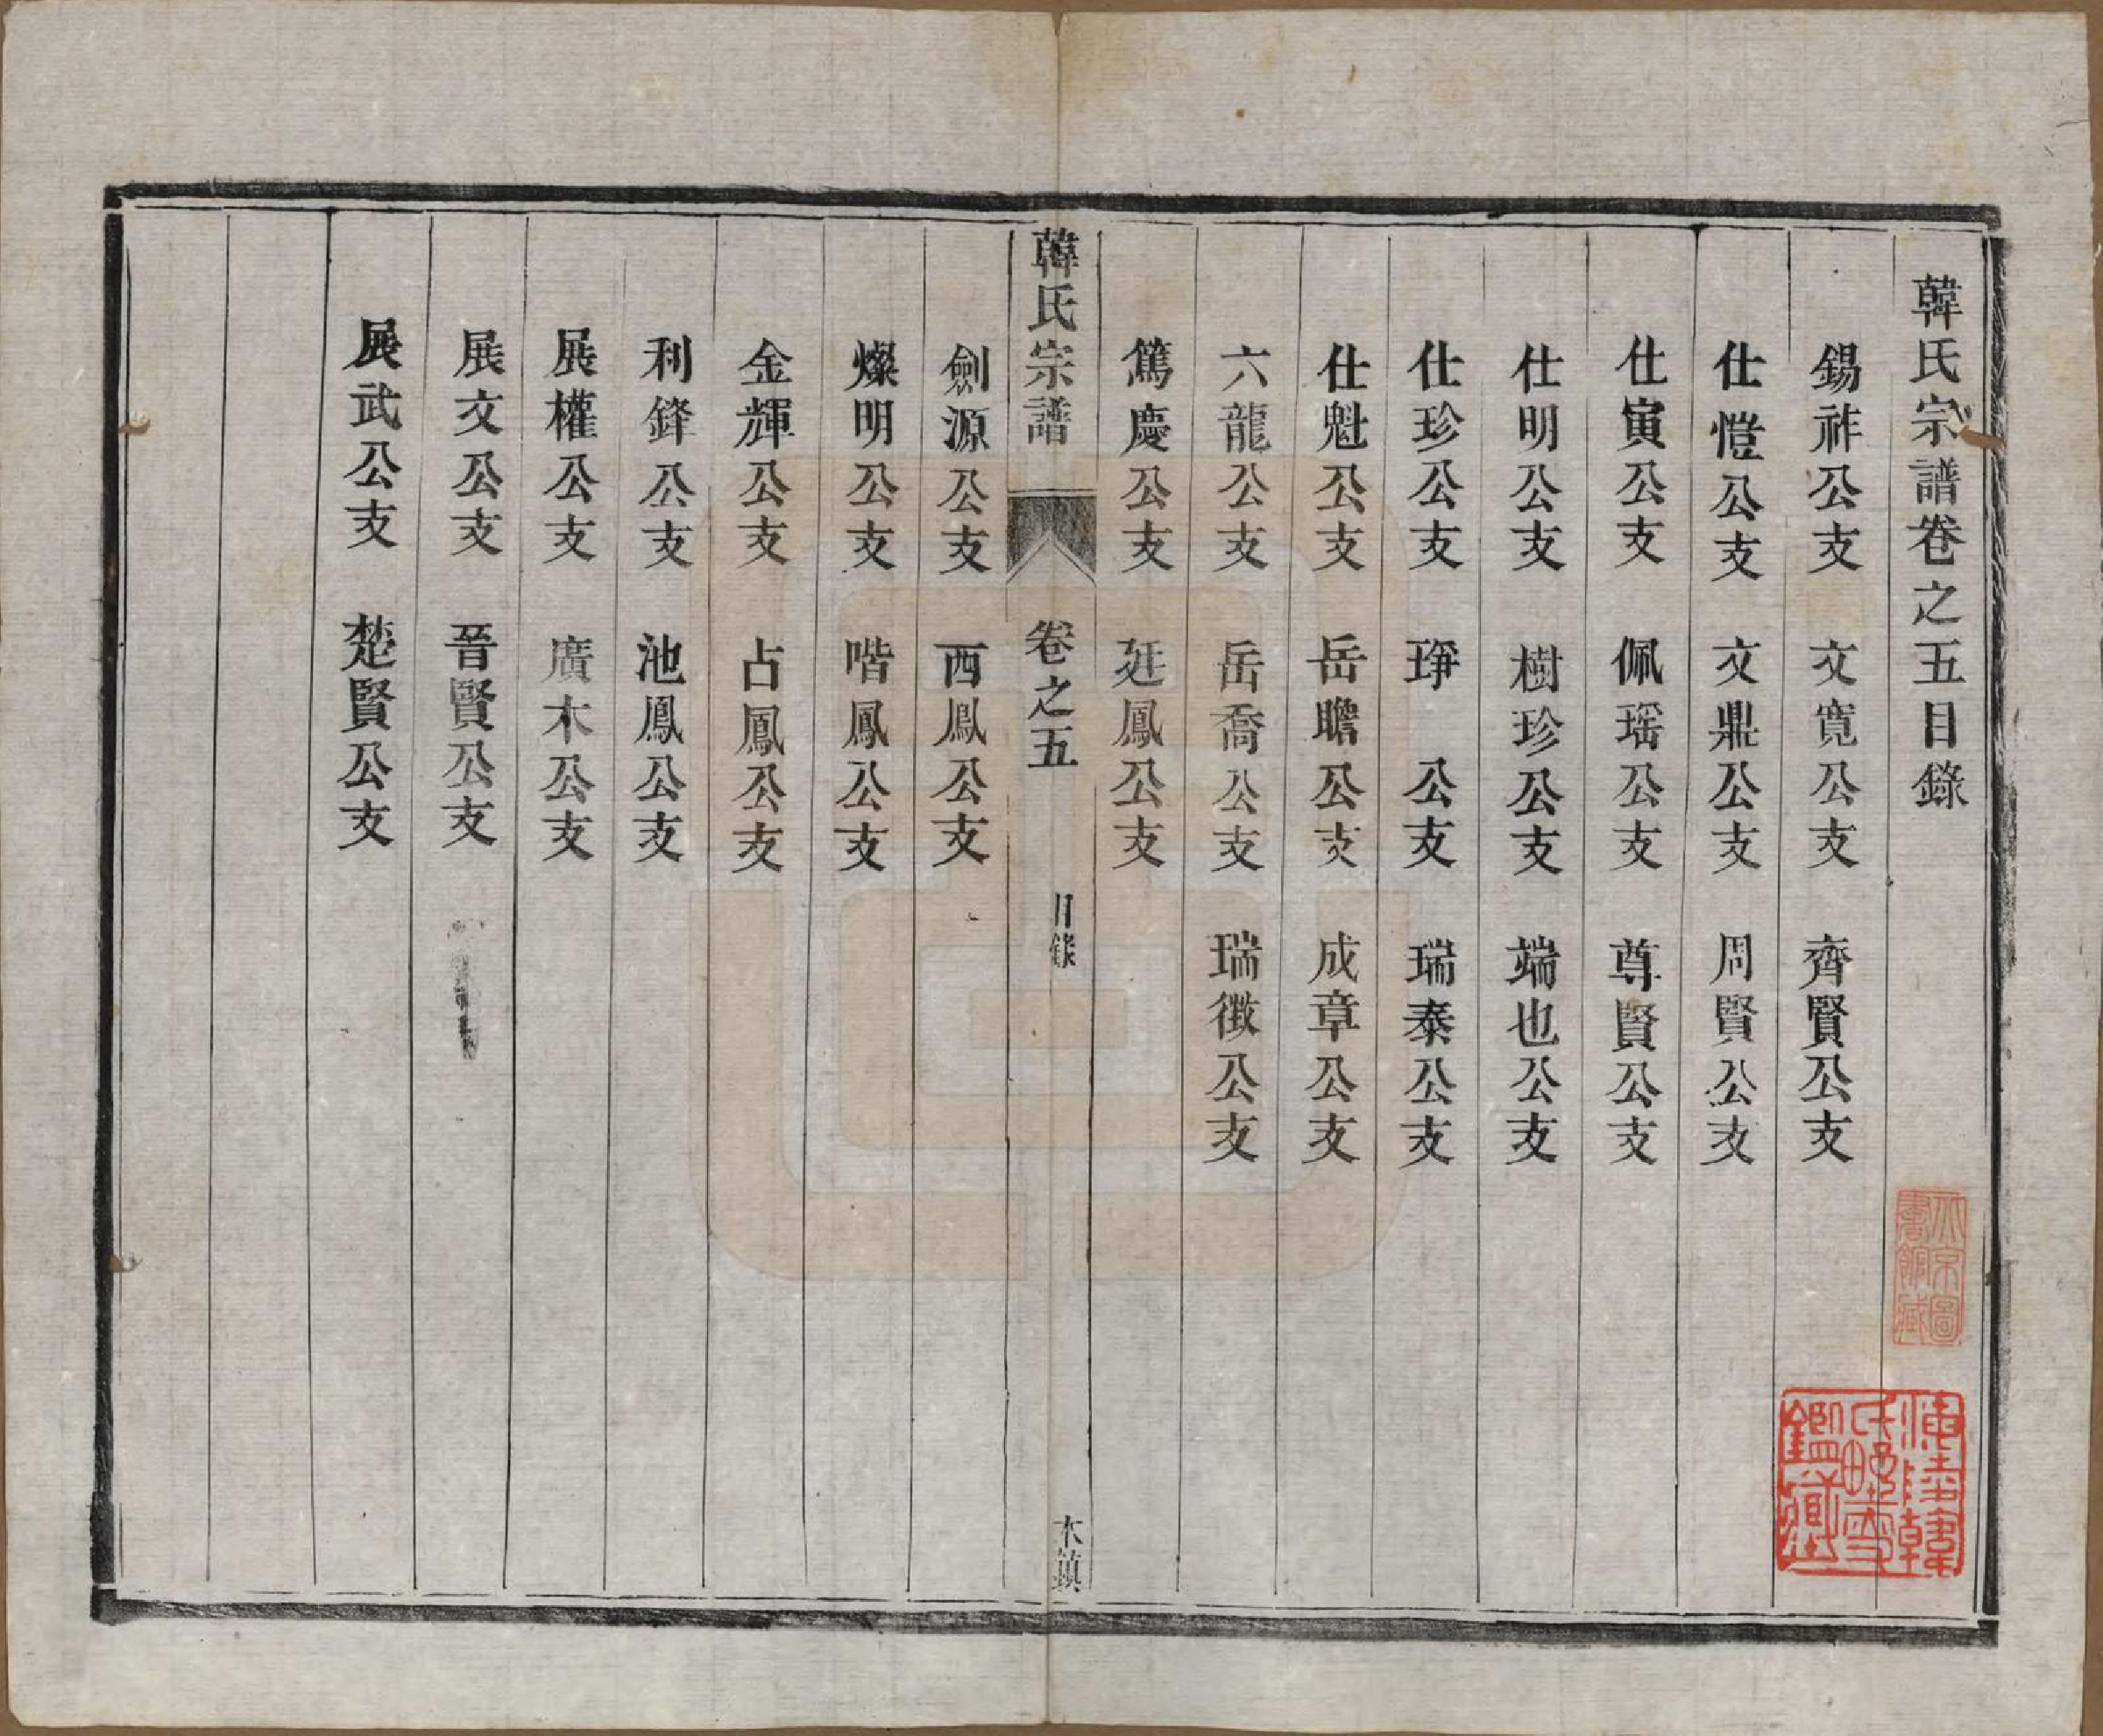 韓氏宗譜卷之五目錄
錫祚公支　文寬公支　齊賢公支
仕愷公支　文鼎公支　周賢公支
仕寅公支　佩瑶公支　尊賢公支
仕明公支　樹珍公支　端也公支
仕珍公支　琤　公支　瑞泰公支
仕魁公支　岳瞻公支　成章公支
六龍公支　岳喬公支　瑞徵公支
篤慶公支　廷鳳公支
韓氏宗譜　卷之五　目錄　木鎮
劍源公支　西鳳公支
燦明公支　喈鳳公支
金輝公支　占鳳公支
利鋒公支　池鳳公支
展權公支　廣木公支
展文公支　晉賢公支
展武公支　楚賢公支
北京圖書館藏